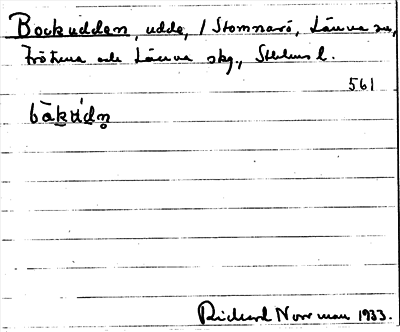 Bockudden, udde, / Stomnarö, Länna sn,
Frötuna och Länna skg, Sthlms l.
561
båkúdn̥
Richard Norrman 1933.